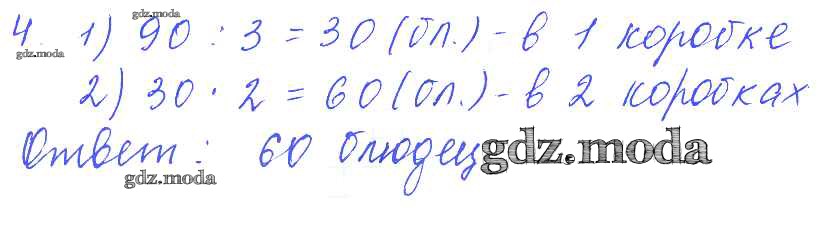 gdz.moda
4. 1) 90 : 3 = 30 (бл.) - в 1 коробке
gdz.moda
2) 30 · 2 = 60 (бл.) - в 2 коробках
Ответ : 60 блюдец gdz.moda
gdz.moda